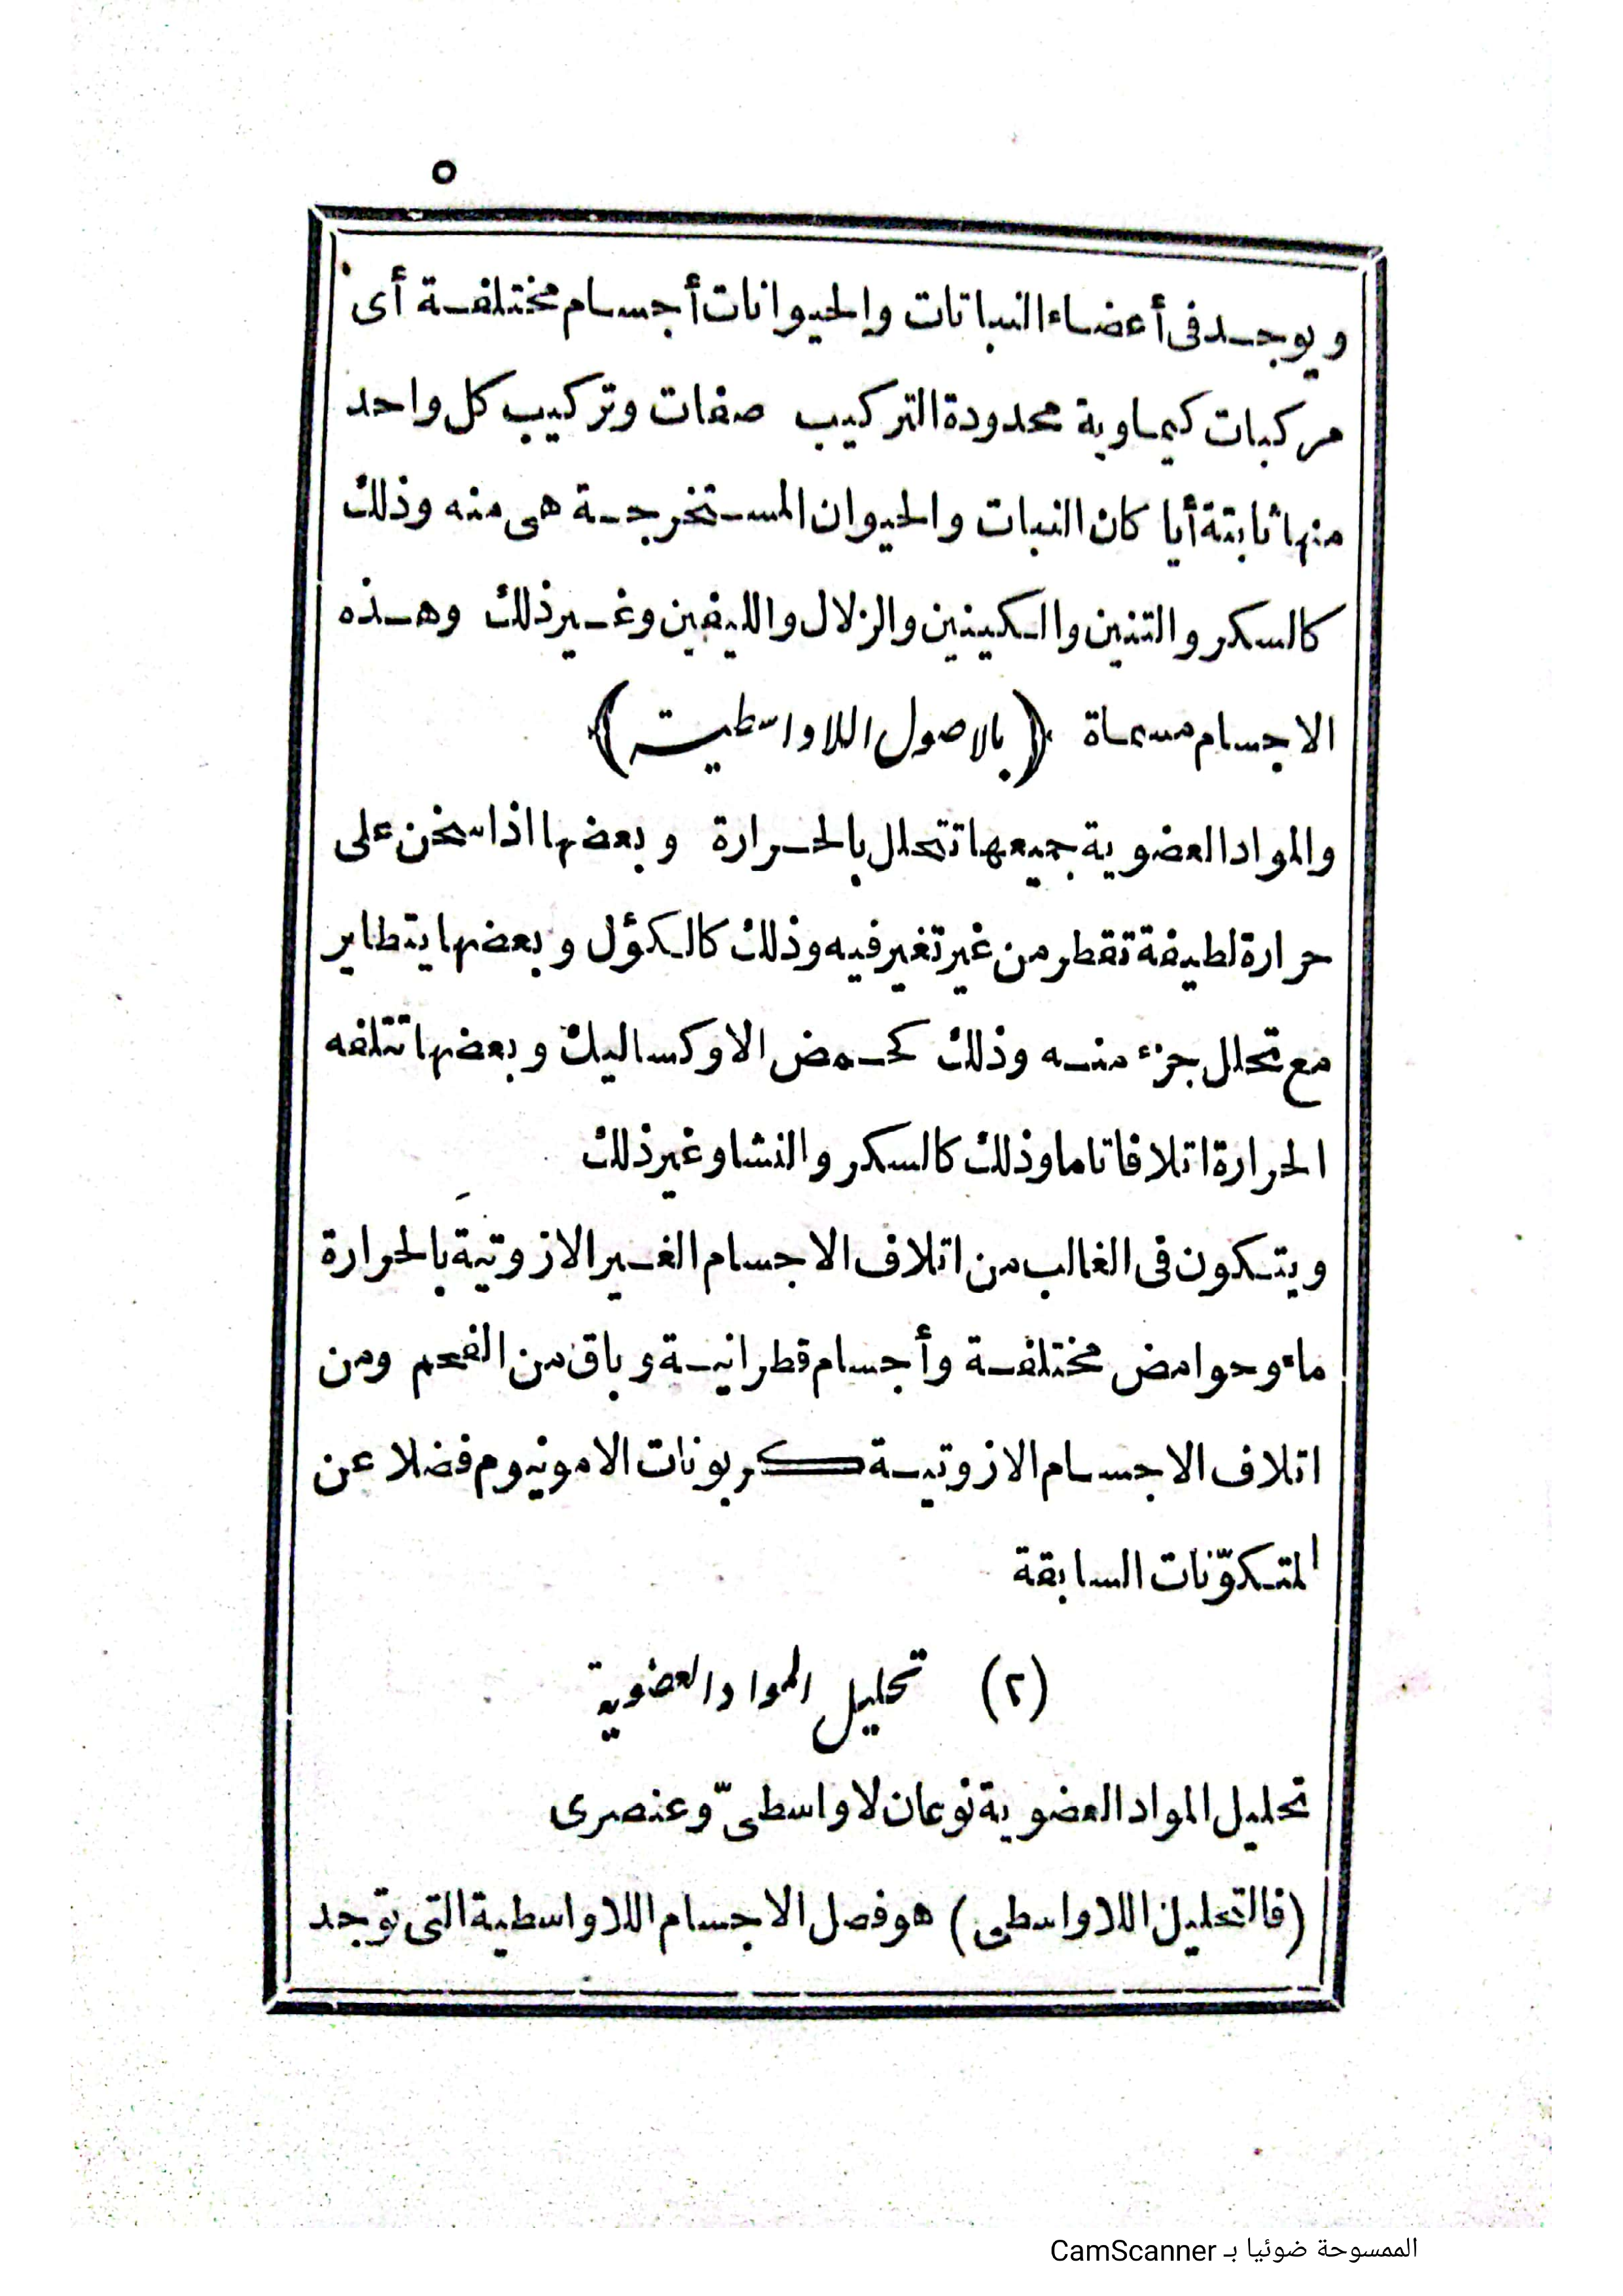 ٥
ويوجد فى أعضاء النباتات والحيوانات أجسام مختلفة أى
مركبات كيماوية محدودة التركيب صفات وتركيب كل واحد
منها ثابتة أيا كان النبات والحيوان المستخرجة هى منه وذلك
كالسكر والتنين والكينين والزلال والليفين وغير ذلك وهذه
الاجسام مسماة (بالاصول اللاواسطية)
والمواد العضوية جميعها تتحلل بالحرارة وبعضها اذا سخن على
حرارة لطيفة تقطر من غير تغير فيه وذلك كالكؤل وبعضها يتطاير
مع تحلل جزء منه وذلك كحمض الاوكساليك وبعضها تتلفه
الحرارة اتلافا تاما وذلك كالسكر والنشا وغير ذلك
ويتكون فى الغالب من اتلاف الاجسام الغير الازوتية بالحرارة
ماء وحوامض مختلفة وأجسام قطرانية وباق من الفحم ومن
اتلاف الاجسام الازوتية كربونات الامونيوم فضلا عن
المتكوّنات السابقة
(٢) تحليل المواد العضوية
تحليل المواد العضوية نوعان لاواسطىّ وعنصرى
(فالتحليل اللاواسطى) هو فصل الاجسام اللاواسطية التى توجد
الممسوحة ضوئيا بـ CamScanner